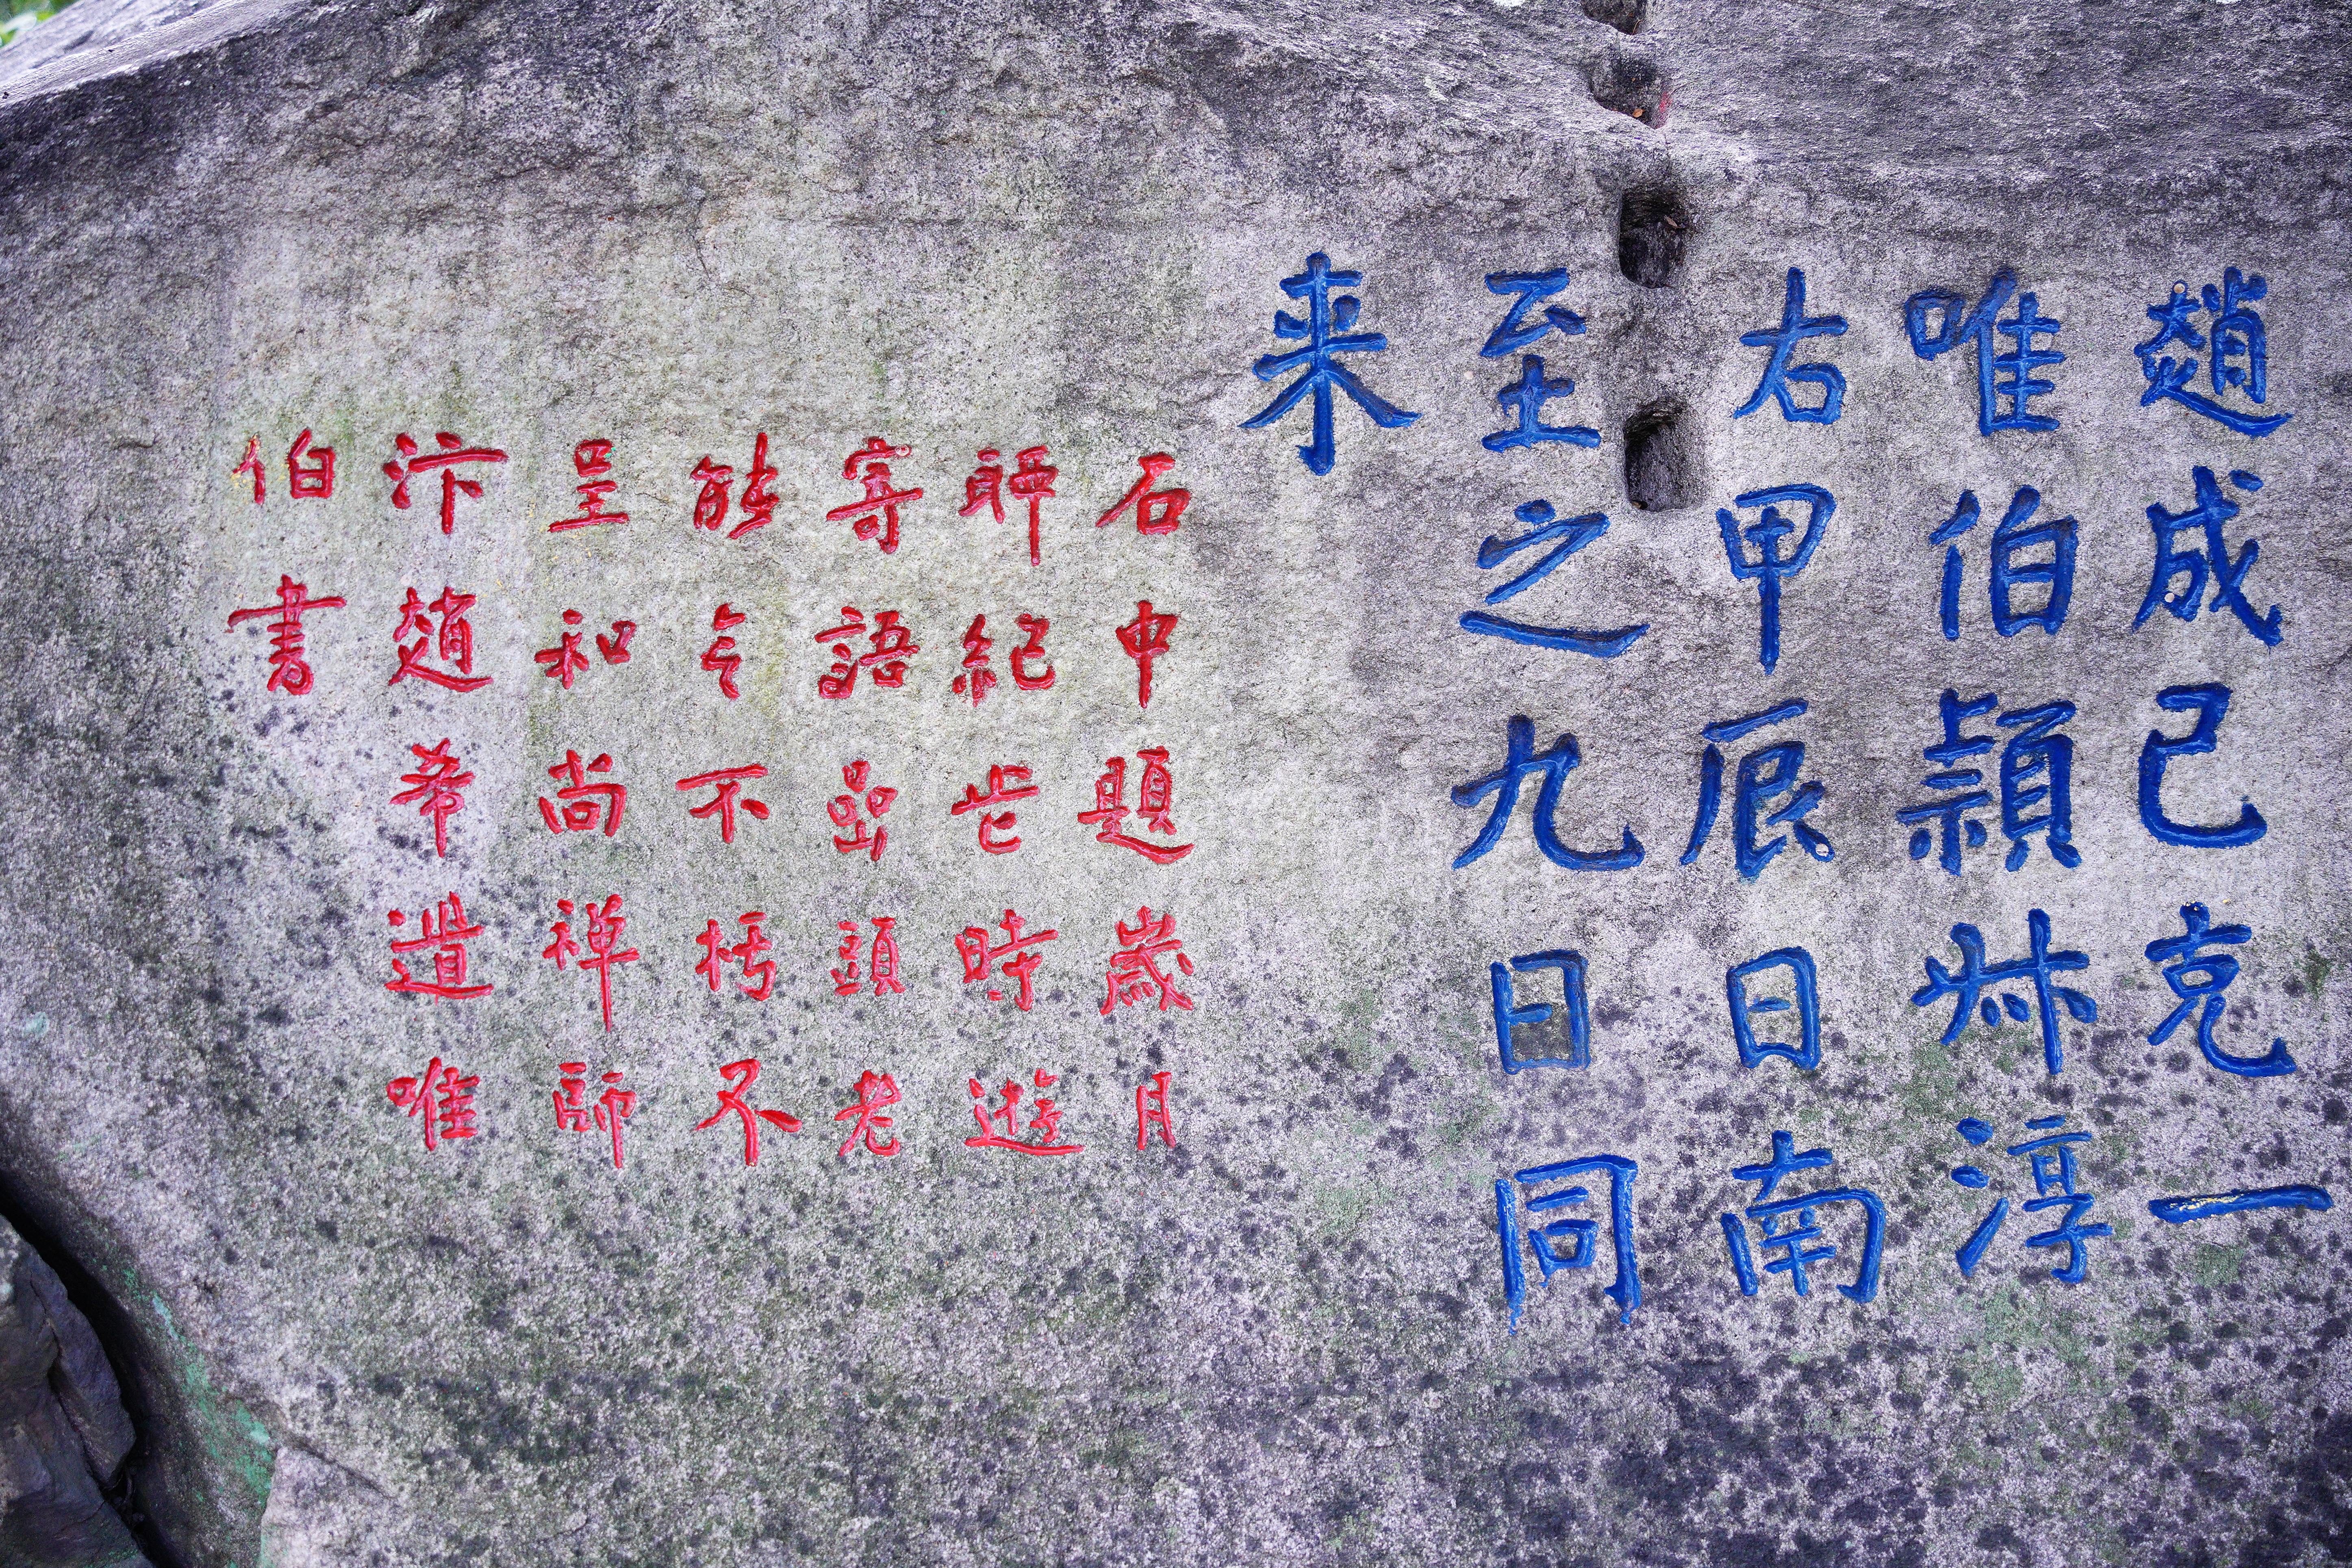 趙成己克一
唯伯頴叔淳
右甲辰日南
至之九日同
来
石中題歲月
聊紀此時遊
寄語嵒頭老
能令不朽不
呈和尚禅師
汴趙希遣唯
伯書